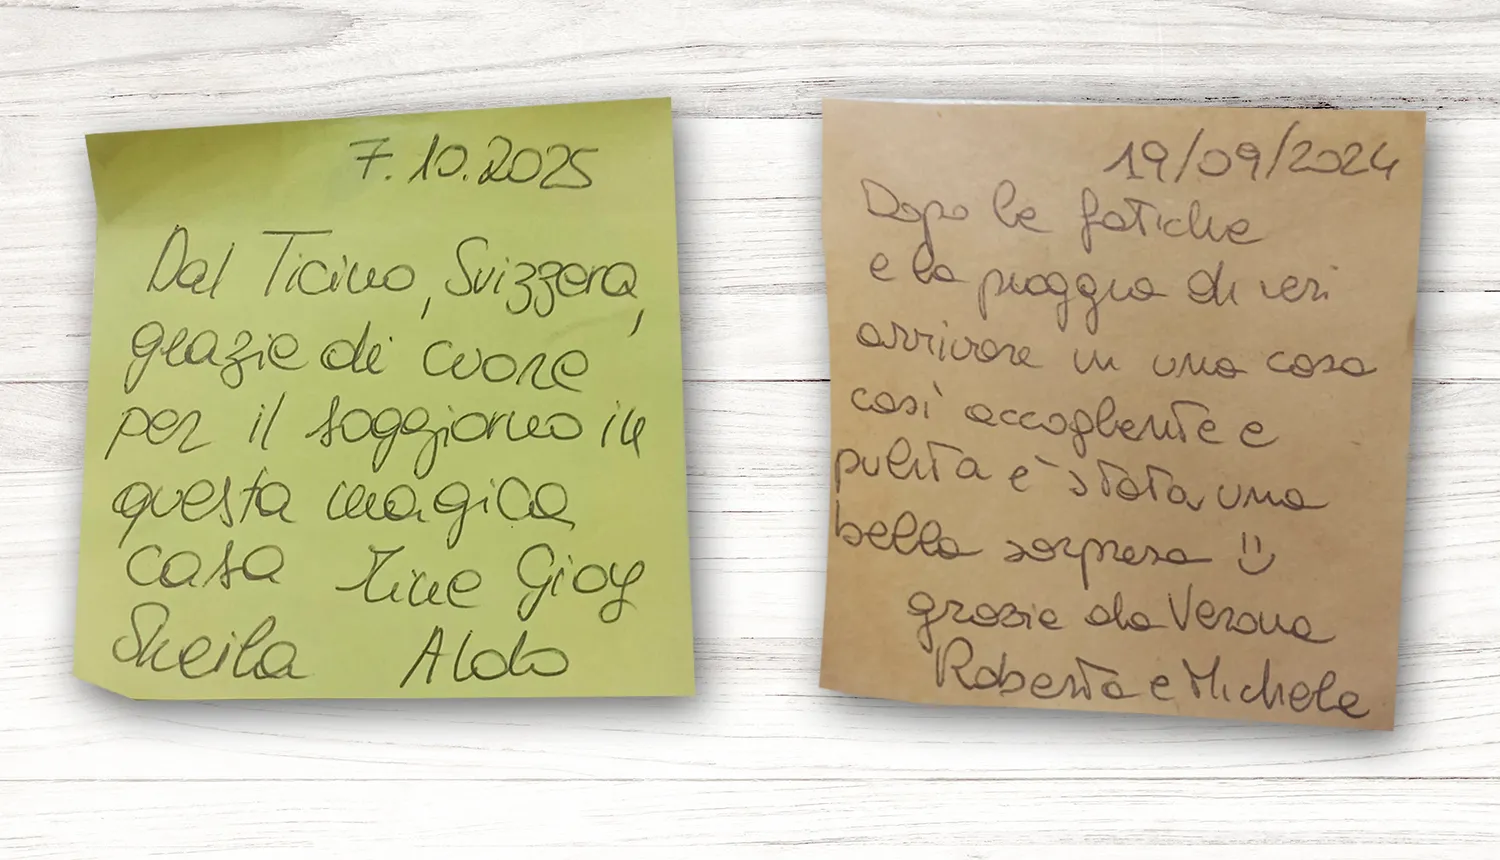 7.10.2025
Dal Ticino, Svizzera,
grazie di cuore
per il soggiorno in
questa magica
casa Tine Gioy
Sheila Aldo
19/09/2024
Dopo le fatiche
e la pioggia di ieri
arrivare in una casa
così accogliente e
pulita è stata una
bella sorpresa :)
grazie da Verona
Roberta e Michele